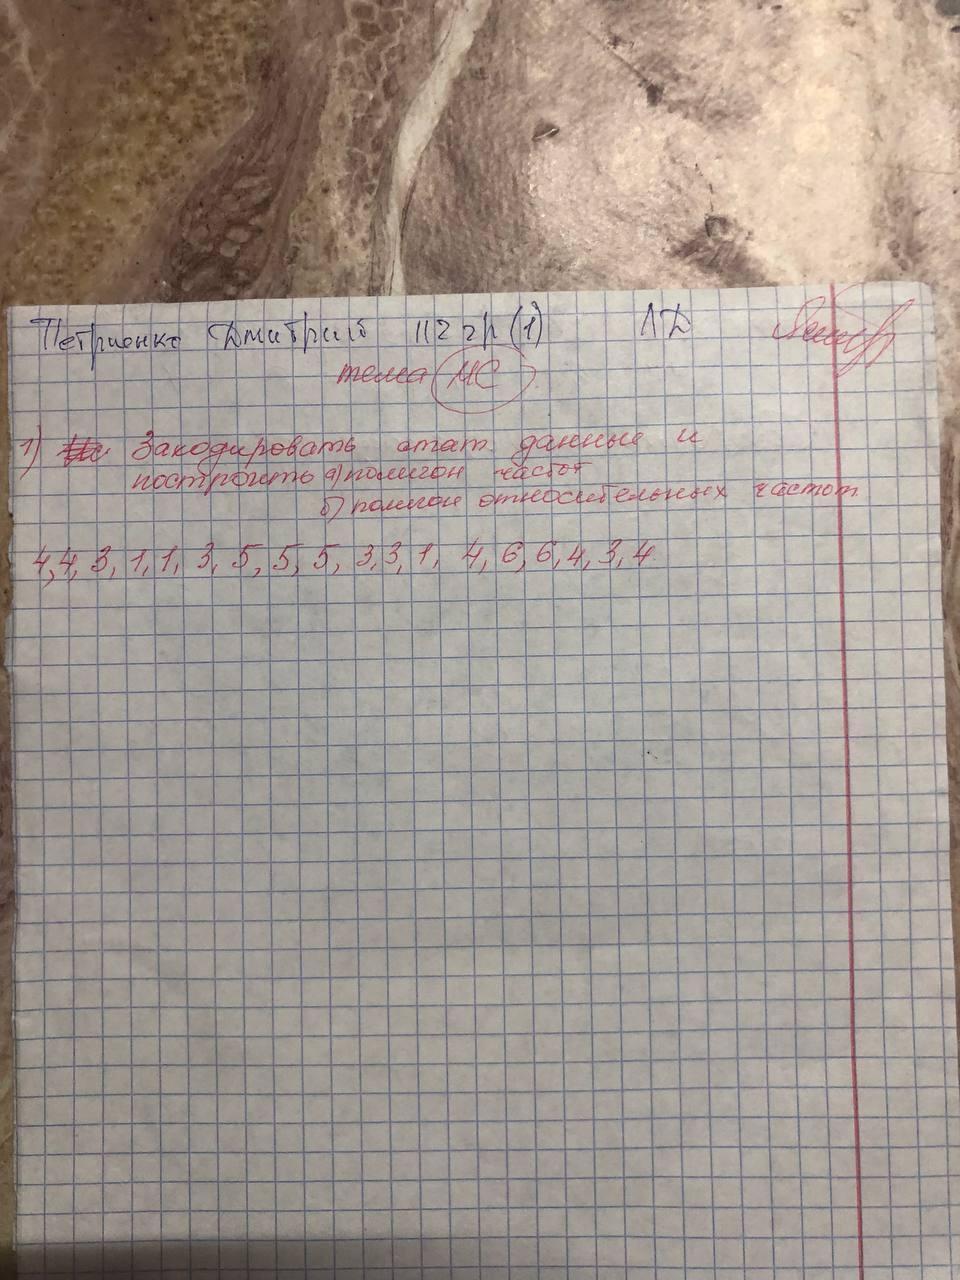 Петриенко Дмитрий 112 гр (1) ЛД
тема МС
1) Закодировать стат данные и
построить а) полигон частот
б) полигон относительных частот
4, 4, 3, 1, 1, 3, 5, 5, 5, 3, 3, 1, 4, 6, 6, 4, 3, 4.